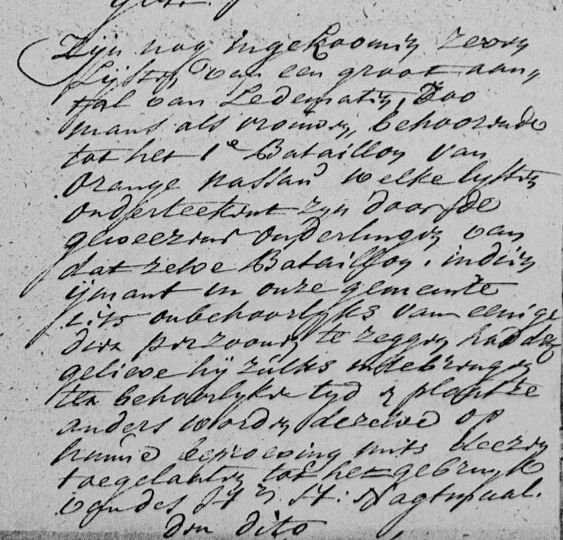 Zijn nog ingekoomen zeven
Lijsten van een groot aan,
tal van Ledematen, Zoo
mans als vrouwen, behoorende
tot het 1e Bataillon van
Orange Nassau welke lysten
onderteekent zyn door de
geweezene ouderlingen van
dat zelve Bataillon. indien
ijmant in onze gemeente
iets onbehoorlyks van eenige
dier perzoonen te zeggen hadde
gelieve hij zulks intebrengen
ten behoorlyke tyd & plaatze
anders worden dezelve op
hunne beproeving mits deezen
toegelaten tot het gebruyk
van des H: Nagtmaal.
den dito